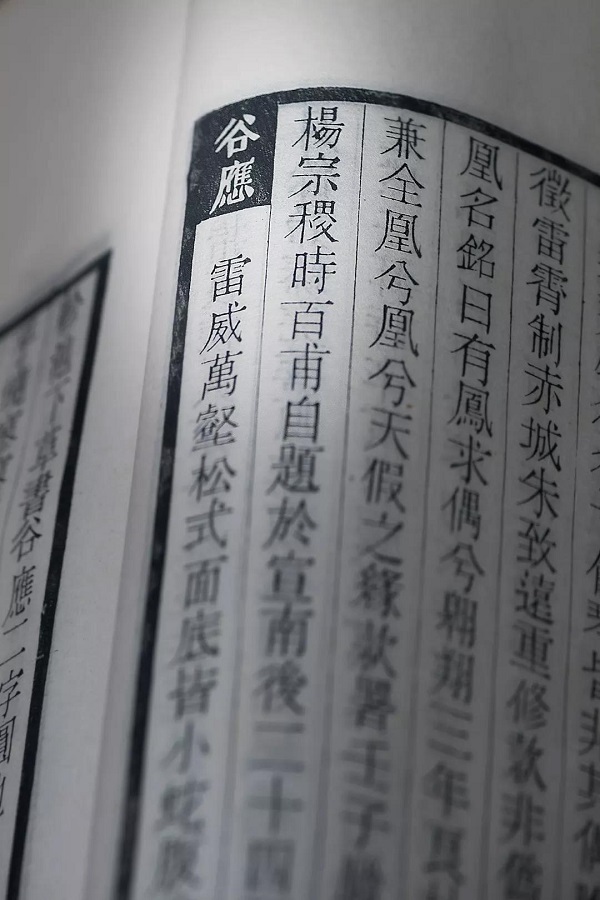 皆非其
徵雷霄制赤城朱致遠重修款非
凰名銘曰有鳳求偶兮翱翔三年真
兼全凰兮凰兮天假之緣款署壬子
楊宗稷時百甫自題於宣南後二十四
谷應
雷威萬壑松式面底皆小蛇腹
下草書谷應二字圓池